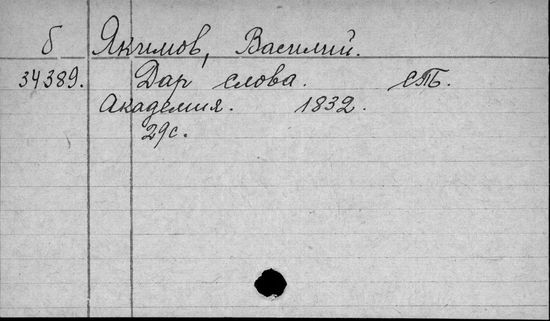 б Якимов, Василий.
34389. Дар слова. СПБ.
Академия. 1832.
29с.